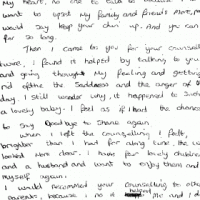 my heart, no one to talk to because I
want to upset my family and friends more, my
would say keep your chin up. And you can
for so long.
Then I came to you for your counsell
were, I found it helped by talking to you
and going through my feeling and getting
rid of the Saddness and the anger of
day. I still wonder why it happened to such
a lovely baby. I feel as if I lost the chance
to say Goodbye to Shane again
when I left the counselling I felt,
brighter than I had for along time, the w
looked more clear. I have four lovely children
and a husband and want to enjoy them and
myself again.
I would recommed your counselling to othe
parents, because no is helped Me and I